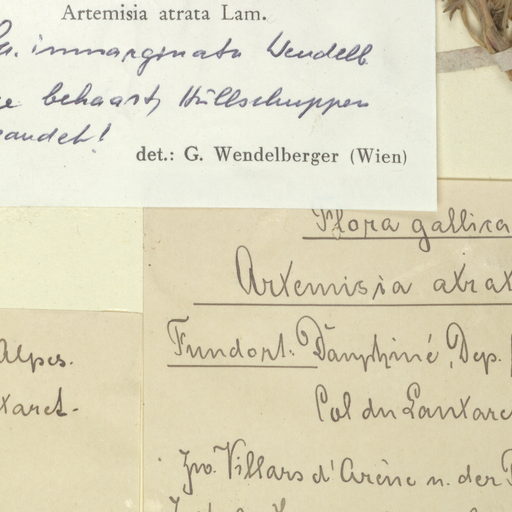 Artemisia atrata Lam.
immarginata Wendelb
behaart, Hüllschuppen
randet!
det.: G. Wendelberger (Wien)
Flora gallica
Artemisia atrat
Fundort: Dauphiné, Dep.
Col du Lautaret
Zw. Villars d'Arène u. der
Alpes.
taret-